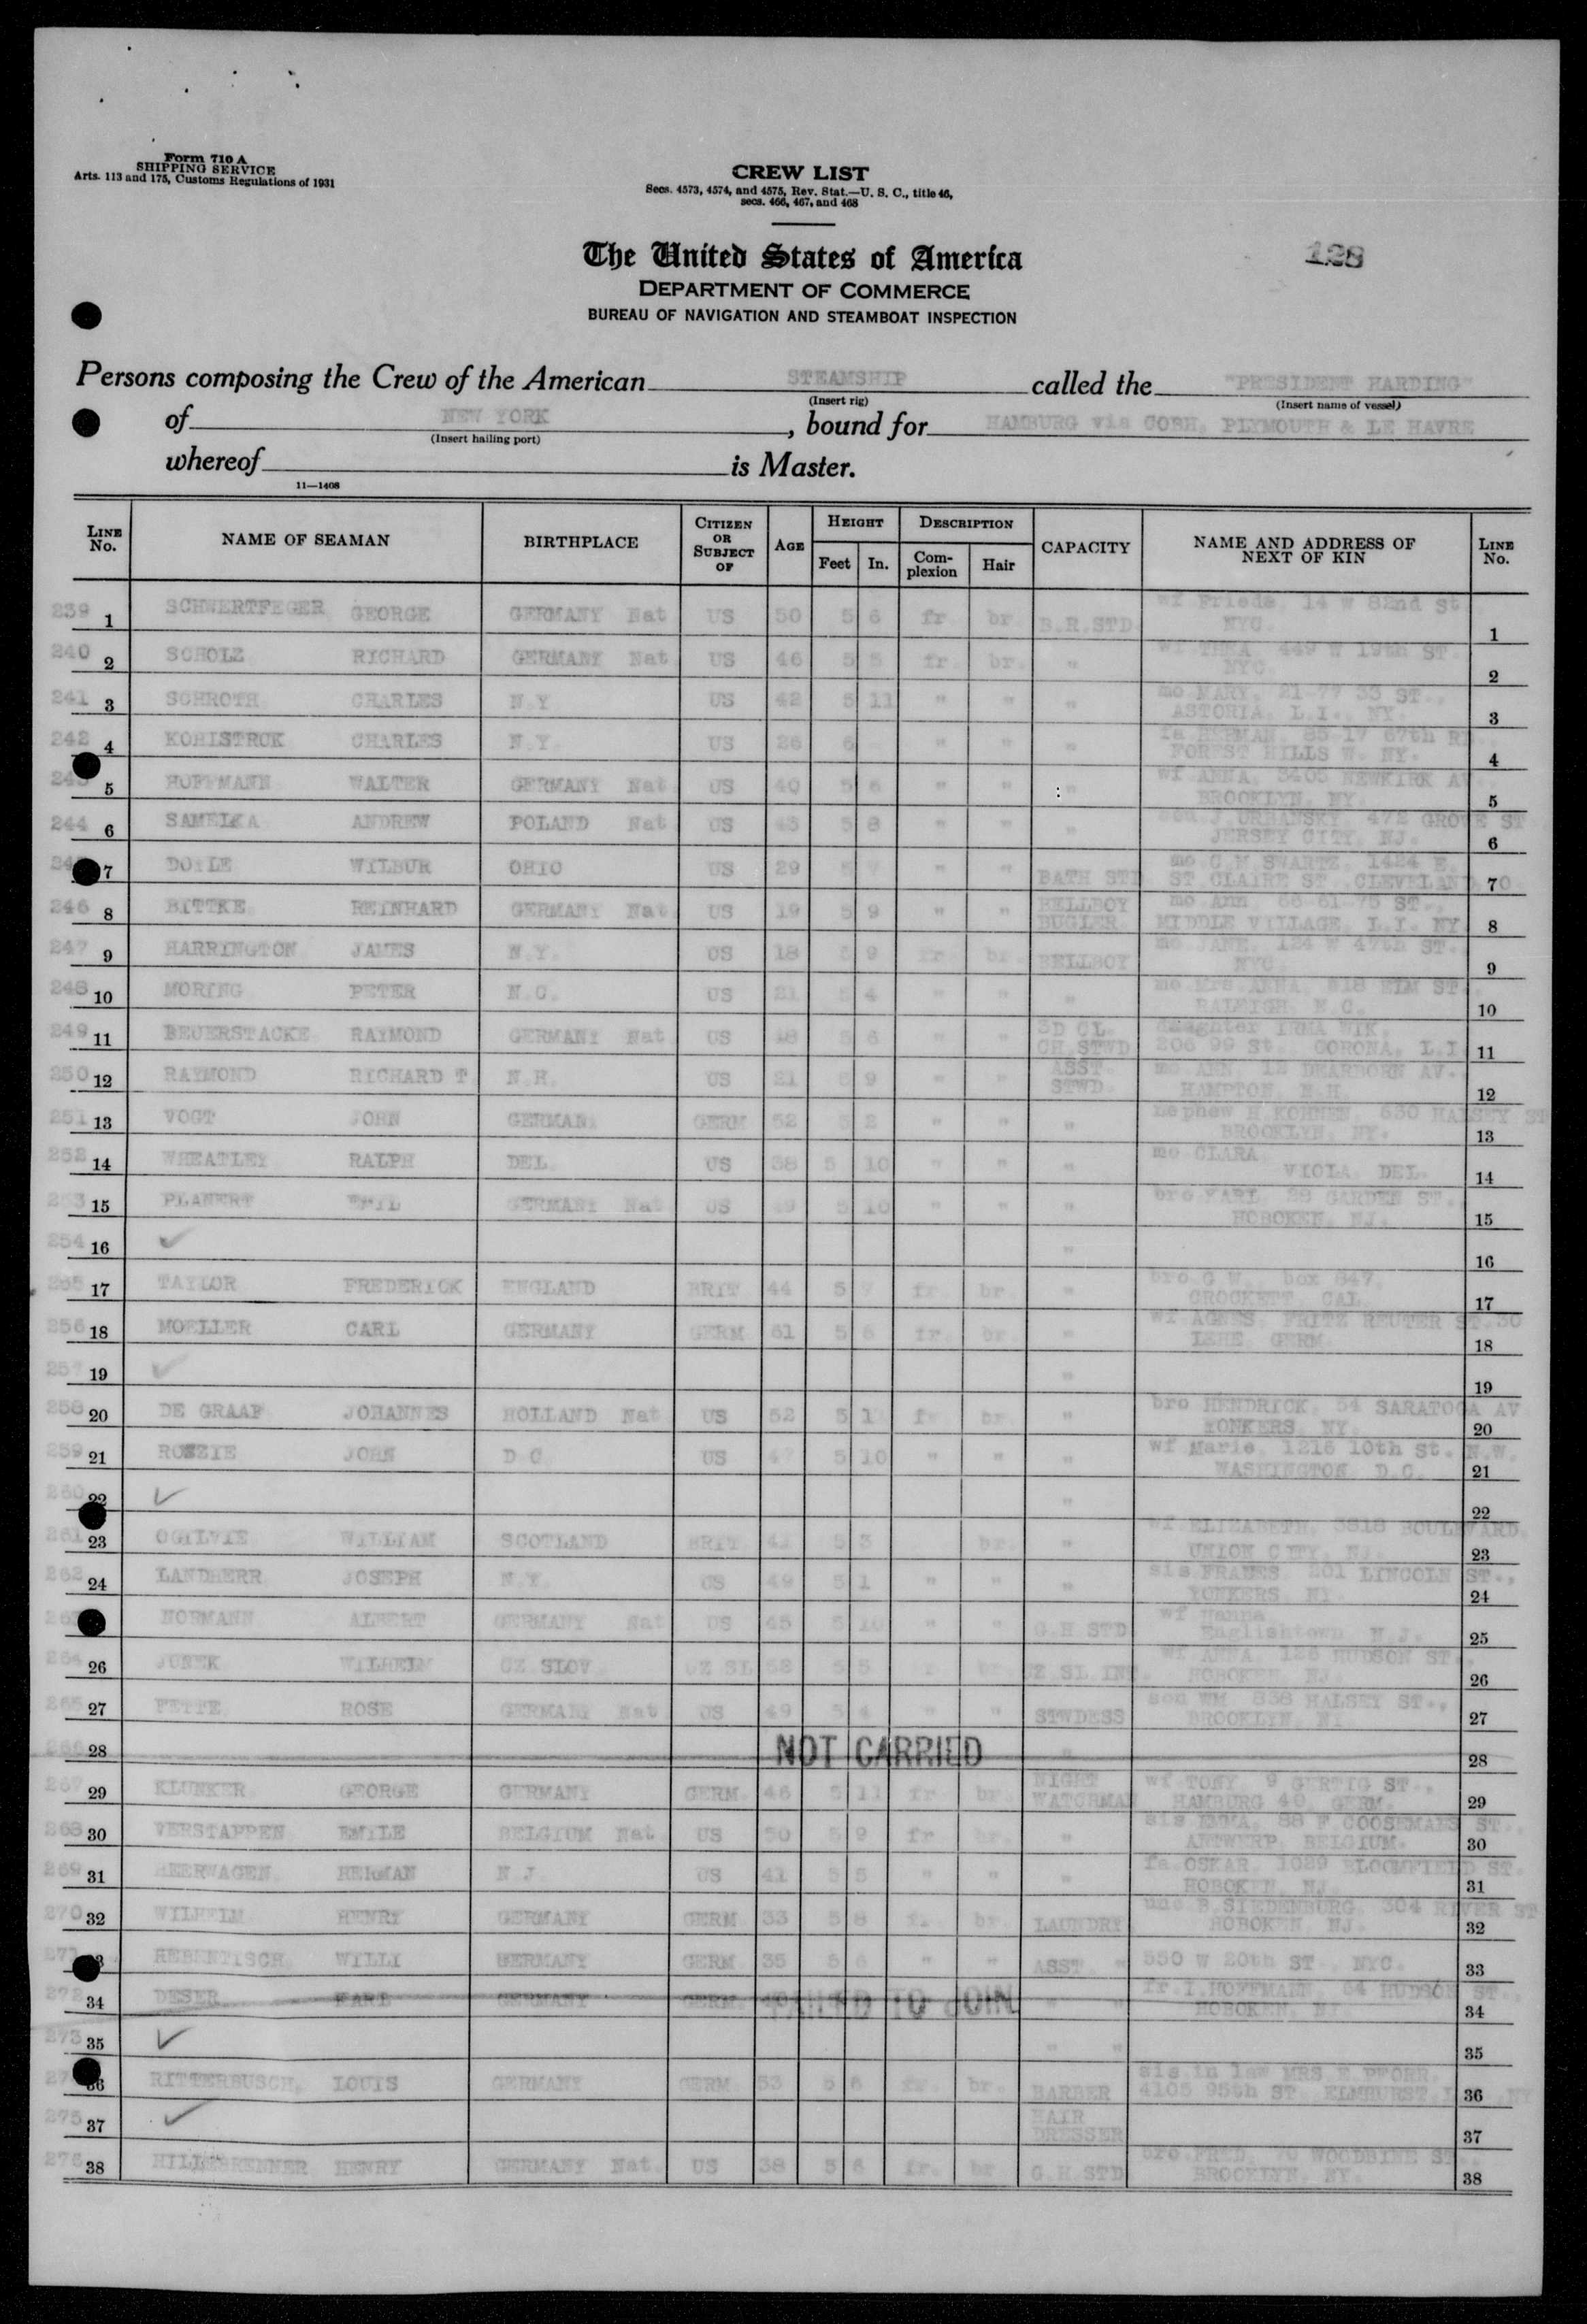 Form 710 A
SHIPPING SERVICE
Arts. 113 and 175, Customs Regulations of 1931
CREW LIST
Secs. 4573, 4574, and 4575, Rev. Stat.—U. S. C., title 46,
secs. 466, 467, and 468
The United States of America
128
DEPARTMENT OF COMMERCE
BUREAU OF NAVIGATION AND STEAMBOAT INSPECTION
Persons composing the Crew of the American STEAMSHIP called the "PRESIDENT HARDING"
(Insert rig) (Insert name of vessel)
of NEW YORK, bound for HAMBURG via COBH, PLYMOUTH & LE HAVRE
(Insert hailing port)
whereof is Master.
11—1408
LINE No. NAME OF SEAMAN BIRTHPLACE CITIZEN OR SUBJECT OF AGE HEIGHT Feet In. DESCRIPTION Complexion Hair CAPACITY NAME AND ADDRESS OF NEXT OF KIN LINE No.
239 1 SCHWERTFEGER GEORGE GERMANY Nat US 50 5 6 fr br. B.R.STD wf Frieda, 14 W 82nd St NYC. 1
240 2 SCHOLZ RICHARD GERMANY Nat US 46 5 5 fr. br. " wf. THEA 449 W 19th ST. NYC 2
241 3 SCHROTH CHARLES N.Y US 42 5 11 " " " mo MARY, 21-77 33 ST., ASTORIA, L.I., NY. 3
242 4 KOHISTROK CHARLES N.Y. US 26 6 " " " fa HERMAN, 85 17 67th RD FOREST HILLS W. NY. 4
5 HOFFMANN WALTER GERMANY Nat US 40 5 6 " " " wf ANNA, 3405 NEWKIRK AV BROOKLYN, NY. 5
244 6 SAMELKA ANDREW POLAND Nat US 43 5 8 " " " J URBANSKY, 472 GROVE ST JERSEY CITY, NJ. 6
7 DOYLE WILBUR OHIO US 29 5 7 " " BATH STD mo C M SWARTZ, 1424 E. ST CLAIRE ST., CLEVELAND, O. 7
246 8 BITTKE REINHARD GERMANY Nat US 19 5 9 " " BELLBOY BUGLER. mo Ann, 66-61-75 ST., MIDDLE VILLAGE, L.I. NY 8
247 9 HARRINGTON JAMES N.Y. US 18 5 9 fr br. BELLBOY mo JANE, 124 W 47th ST. NYC 9
248 10 MORING PETER N.C. US 21 5 4 " " " mo Mrs ANNA, 518 ELM ST., RALEIGH, N.C. 10
249 11 BEUERSTACKE RAYMOND GERMANY Nat US 48 5 6 " " 3D CL. CH.STWD daughter IRMA WIK, 206 99 St. CORONA, L.I 11
250 12 RAYMOND RICHARD T N.H. US 21 5 9 " " ASST. STWD. mo ANN, 12 DEARBORN AV. HAMPTON, N.H. 12
251 13 VOGT JOHN GERMANY GERM 52 5 2 " " " nephew H KOHNEN, 630 HALSEY ST BROOKLYN, NY. 13
252 14 WHEATLEY RALPH DEL. US 38 5 10 " " " mo CLARA VIOLA DEL. 14
253 15 PLANERT EMIL GERMANY Nat US 49 5 10 " " " bro KARL 28 GARDEN ST., HOBOKEN, NJ. 15
254 16 ✓ " 16
255 17 TAYLOR FREDERICK ENGLAND BRIT 44 5 7 fr br. " bro G W. box 847, CROCKETT, CAL 17
256 18 MOELLER CARL GERMANY GERM 61 5 6 fr. br. " wf AGNES, FRITZ REUTER ST.30 LEHE, GERM. 18
257 19 ✓ " 19
258 20 DE GRAAF JOHANNES HOLLAND Nat US 52 5 1 fr br. " bro HENDRICK, 54 SARATOGA AV YONKERS NY. 20
259 21 ROZZIE JOHN D C US 47 5 10 " " " wf Marie, 1216 10th St. N.W. WASHINGTON D.C. 21
260 22 ✓ " 22
261 23 OGILVIE WILLIAM SCOTLAND BRIT 41 5 3 br. " wf ELIZABETH, 3818 BOULEVARD. UNION CITY, NJ. 23
262 24 LANDHERR JOSEPH N.Y. US 49 5 1 " " " sis 201 LINCOLN ST., YONKERS NY. 24
HORMANN ALBERT GERMANY Nat US 45 5 10 " " G.H STD wf Hanna Englishtown N.J. 25
264 26 JUREK WILHELM CZ SLOV CZ SL 58 5 5 br. CZ SL.INT. wf ANNA, 126 HUDSON ST., HOBOKEN NJ. 26
265 27 FETTE ROSE GERMANY Nat US 49 5 4 " " STWDESS son WM 838 HALSEY ST., BROOKLYN, NY. 27
266 28 NOT CARRIED " 28
267 29 KLUNKER GEORGE GERMANY GERM. 46 5 11 fr br. NIGHT WATCHMAN wf TONY 9 GERTIG ST., HAMBURG 40, GERM. 29
268 30 VERSTAPPEN EMILE BELGIUM Nat US 50 5 9 fr br. " sis EMMA, 88 F COOSEMANS ST., ANTWERP, BELGIUM. 30
269 31 HEERWAGEN HERMAN N J. US 41 5 5 " " " fa OSKAR, 1029 BLOOMFIELD ST. HOBOKEN, NJ. 31
270 32 WILHELM HENRY GERMANY GERM 33 5 8 br. LAUNDRY unc B.SIEDENBURG, 304 RIVER ST HOBOKEN, NJ. 32
271 REBENTISCH WILLI GERMANY GERM. 35 5 6 " " ASST. " 550 W 20th ST., NYC. 33
272 34 DESER KARL GERMANY GERM. FAILED TO JOIN " " fr. I.HOFFMANN, 64 HUDSON ST., HOBOKEN, NJ. 34
273 35 ✓ " " 35
RITTERBUSCH, LOUIS GERMANY GERM. 53 5 6 fr. br. BARBER sis in law MRS E PFORR, 4105 95th ST. ELMHURST, L NY 36
275 37 ✓ HAIR DRESSER 37
276 38 HILLEBRENNER HENRY GERMANY Nat. US 38 5 6 fr. br G.H STD bro FRED, 70 WOODBINE ST., BROOKLYN, NY. 38